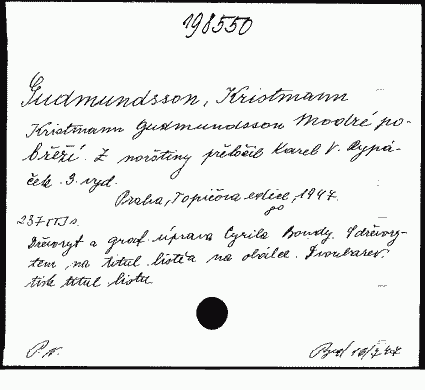 198550
Gudmundsson, Kristmann
Kristmann Gudmundsson Modré po-
břeží. Z norštiny přeložil Karel V. Rypá-
ček. 3. vyd.
Praha, Topičova edice, 1947.
8°
237 s.
Dřevoryt a graf. úprava Cyrila Boudy. S dřevory-
tem na titul. listě a na obálce. Dvoubarev.
tisk titul. listu
P. v.